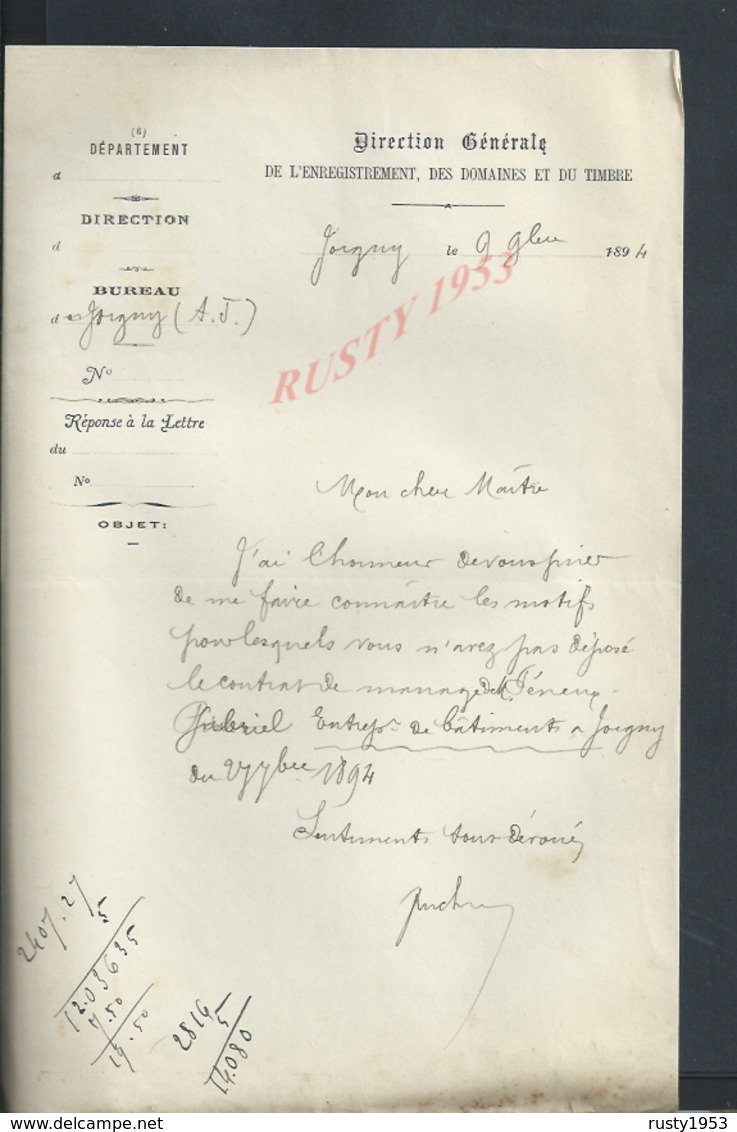 (6)
DÉPARTEMENT
d
DIRECTION
d
BUREAU
d es Joigny (A. J.)
N°
Réponse à la Lettre
du
N°
OBJET:
Direction Générale
DE L'ENREGISTREMENT, DES DOMAINES ET DU TIMBRE
Joigny le 9 9bre 1894
RUSTY 1953
Mon cher Maître
J'ai l'honneur de vous prier
de me faire connaître les motifs
pour lesquels vous n'avez pas déposé
le contrat de mariage de M.
Gabriel Entrepr. de bâtiments a Joigny
du 27 7bre 1894
Sentiments tous dévoués
2407.27
5
12.03635
7.50
19.50
2816
5
14.080
delcampe.net
rusty1953